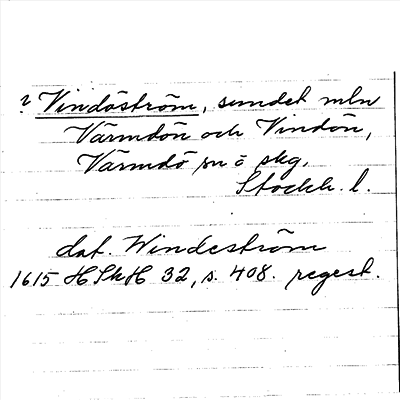 ? Vindöström, sundet mln
Värmdön och Vindön,
Värmdö sn o skg.
Stockh. l.
dat. Windeström
1615 HSkH 32, s. 408. regest.